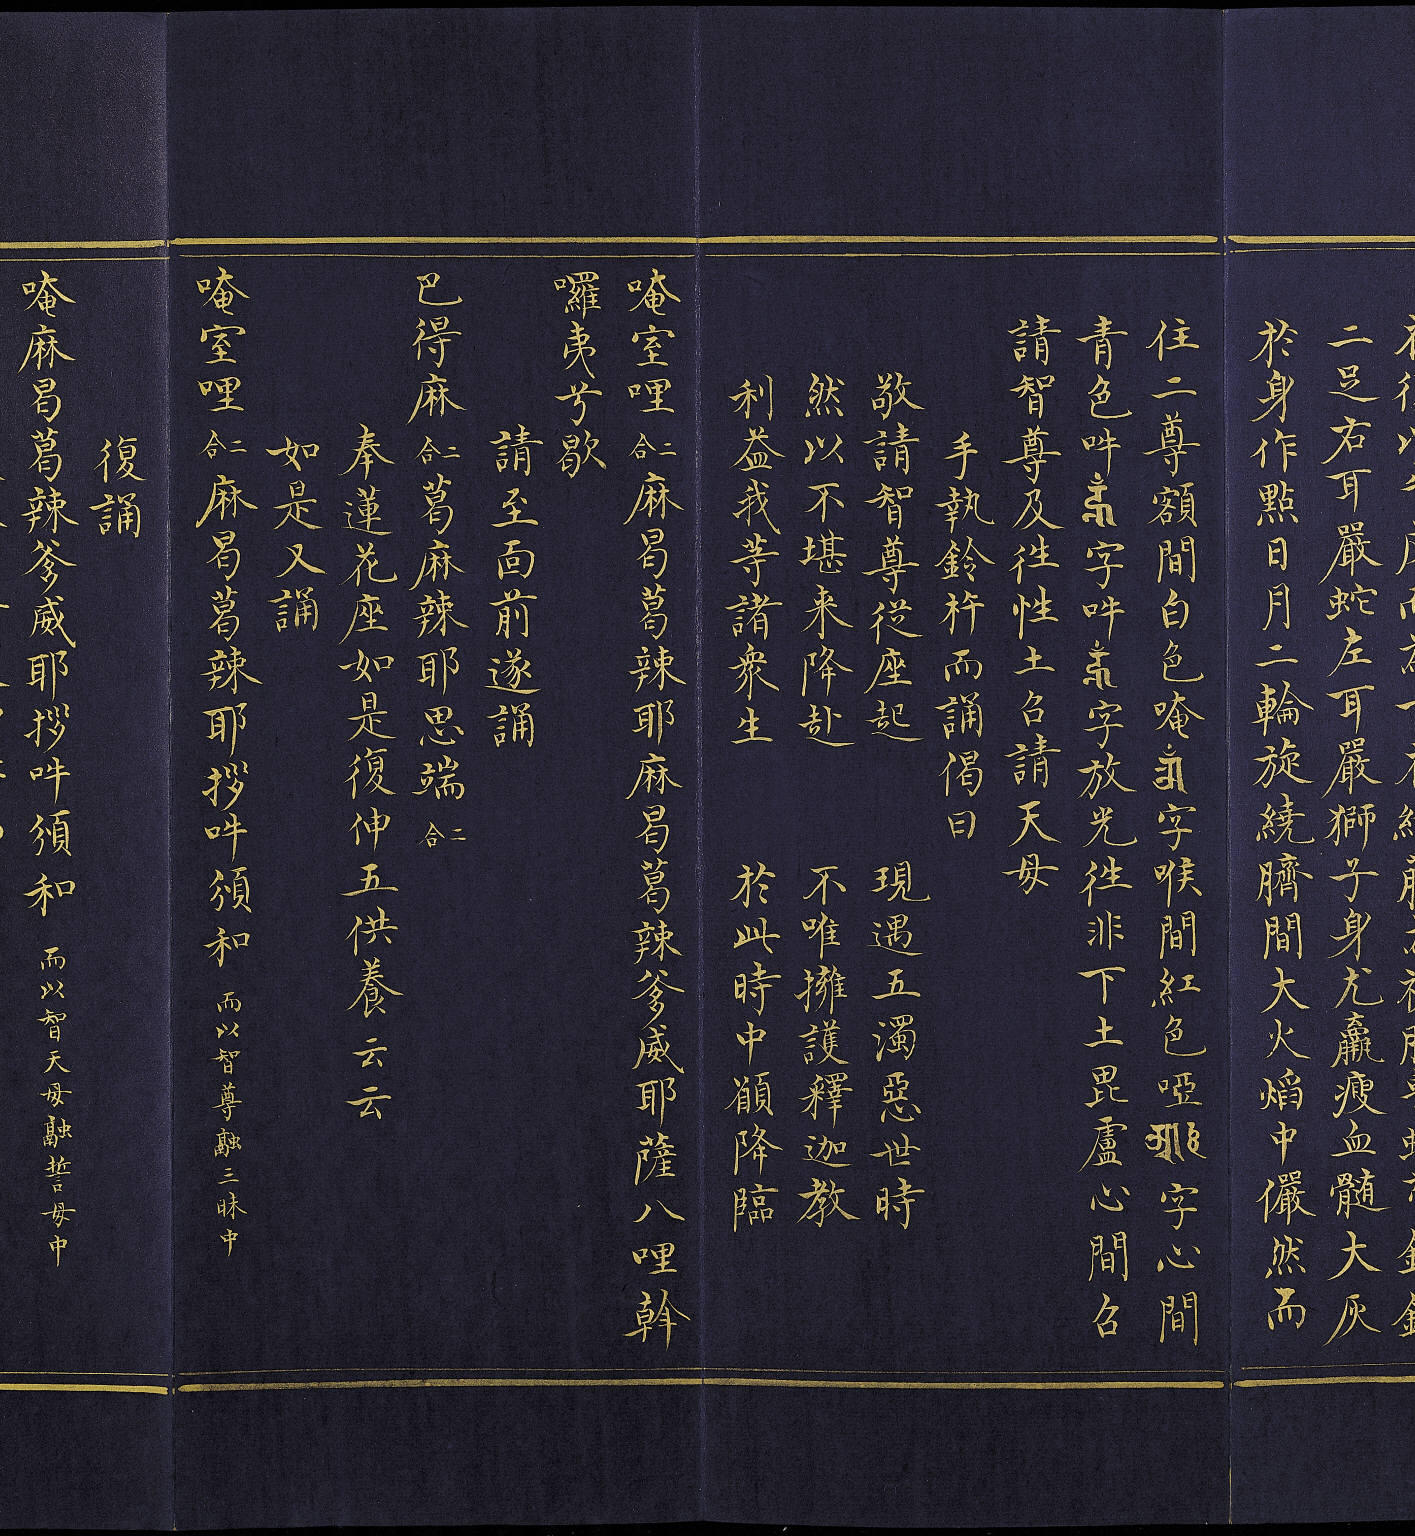 二足右耳嚴蛇左耳嚴獅子身尤羸瘦血髓大灰
於身作點日月二輪旋繞臍間大火焰中儼然而
住二尊額間白色唵字喉間紅色啞字心間
青色吽字吽字放光徃非下土毘盧心間召
請智尊及徃性土召請天母
手執鈴杵而誦偈曰
敬請智尊從座起　現遇五濁惡世時
然以不堪来降赴　不唯擁護釋迦教
利益我等諸衆生　於此時中願降臨
唵室哩二合麻曷葛辣耶麻曷葛辣爹威耶薩八哩斡
囉夷兮歇
請至面前遂誦
巴得麻二合葛麻辣耶思端二合
奉蓮花座如是復伸五供養云云
如是又誦
唵室哩二合麻曷葛辣耶拶吽須和而以智尊融三昧中
復誦
唵麻曷葛辣爹威耶拶吽須和而以智天母融誓母中